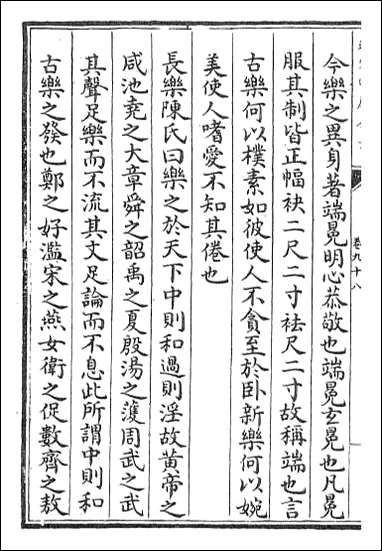 今樂之異身著端冕明心恭敬也端冕玄冕也凡冕
服其制皆正幅袂二尺二寸袪尺二寸故稱端也言
古樂何以樸素如彼使人不貪至於卧新樂何以婉
美使人嗜愛不知其倦也
長樂陳氏曰樂之於天下中則和過則淫故黄帝之
咸池堯之大章舜之韶禹之夏殷湯之濩周武之武
其聲足樂而不流其文足論而不息此所謂中則和
古樂之發也鄭之好濫宋之燕女衛之促數齊之敖
卷九十八